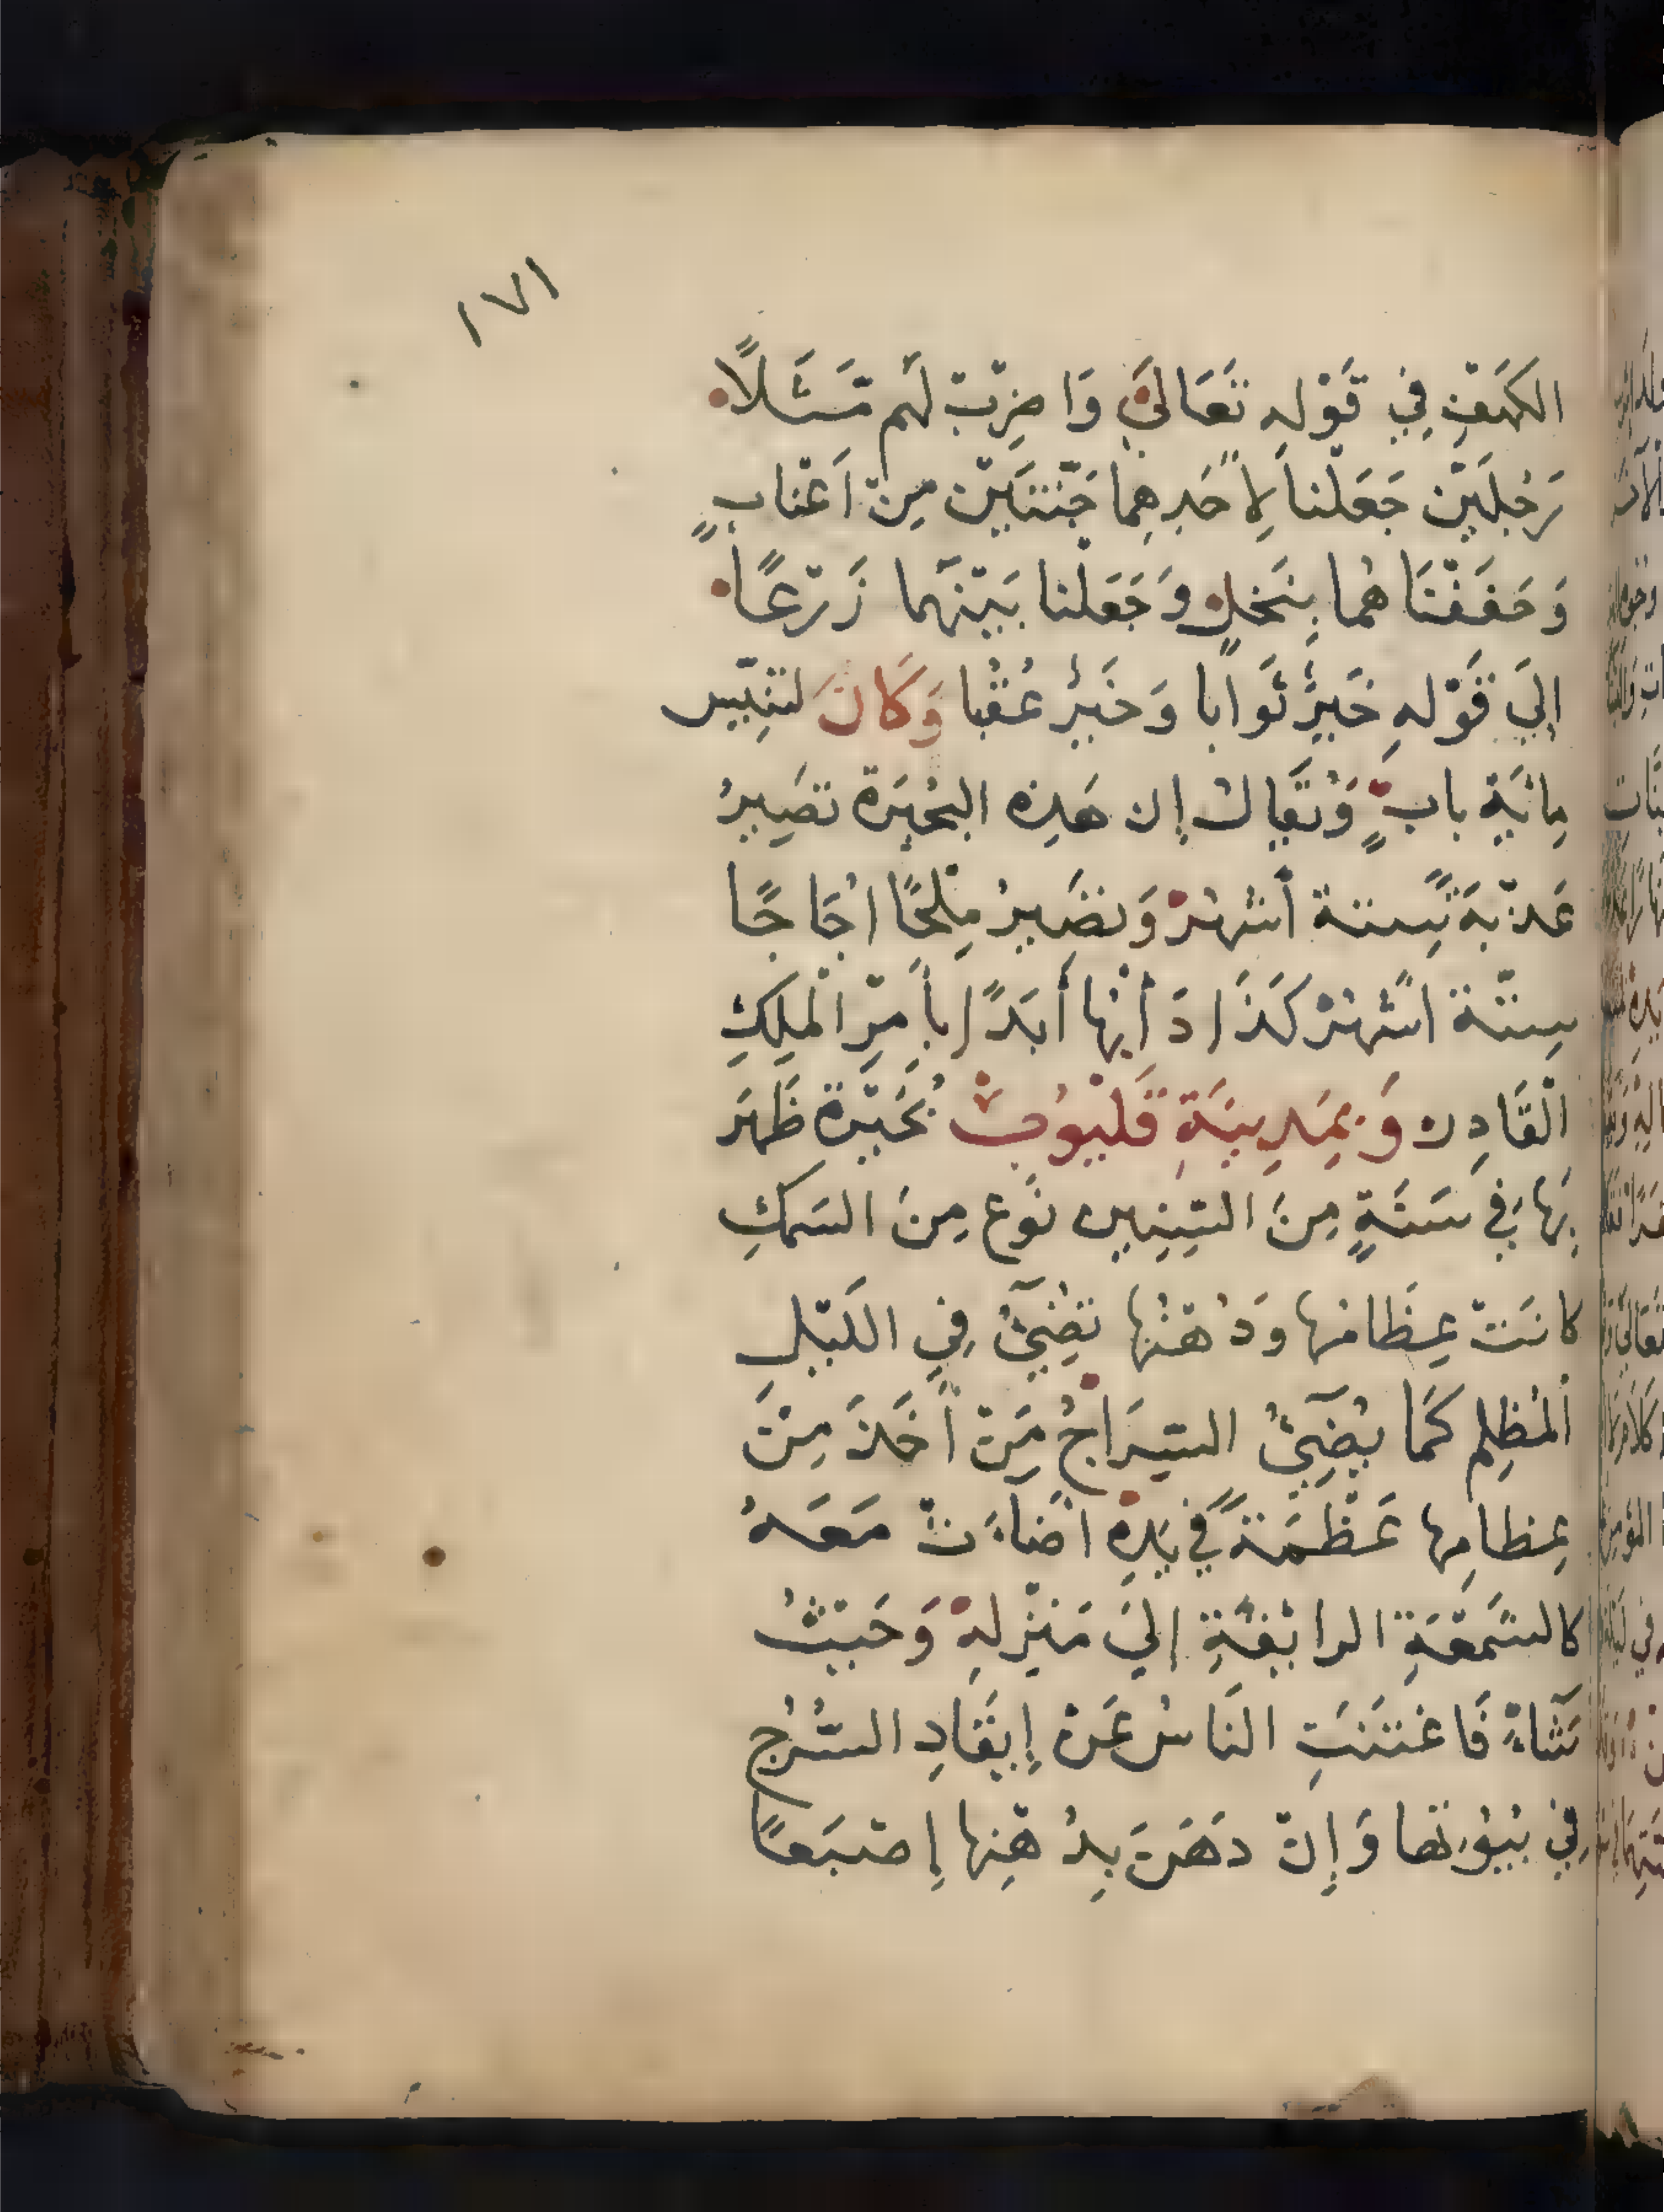 ١٧١
الكَهَفِ فِي قَوْلِهِ تَعَالَىَ وَاضْرِبْ لَهُم مَّثَلًا
رَجُلَيْنِ جَعَلْنَا لِأَحَدِهِمَا جَنَّتَيْنِ مِنْ أَعْنَابٍ
وَحَفَفْنَاهُمَا بِنَخْلٍ وَجَعَلْنَا بَيْنَهُمَا زَرْعًا
اِلَيَ قَوْلِهِ خَيْرٌ ثَوَابًا وَخَيْرٌ عُقْبًا وَكَانَ لتنِّيس
مِائَةِ بابٍ وَيُقَالُ إن هَذِهِ البُحَيْرَة تَصِيرُ
عَذْبَةً سِتة أشهُرْ وَتصَيرُ مِلْحًا اُجَاجًا
سِتّة اشهُرْ كَذَا دَأبُهَا أَبَدًا بأَمْرِ الْمَلِكِ
الْقَادِر وَبِمَدِينَةِ قَلْيُوبْ بُحَيْرَة ظَهَر
بِهَا فِي سَنَةٍ مِنَ السِّنِين نَوع مِنَ السَمَكِ
كانَتْ عِظَامُها وَدُهْنُها تُضِيَئُ فِي اللَيْلِ
اْلمُظْلِم كَمَا يُضِيَئُ السِّرَاجُ مَنْ أَخَذَ مِنْ
عِظامِها عَظْمَةً فِي يَدِهِ اضَاءَتْ مَعَهُ
كالشَمْعَةِ الرائِقَةِ اِلَيَ مَنْزِلِهِ وَحَيْثُ
شَاءَ فَاغْتَنَتِ النَاسُ عَنْ إِيْقَادِ السُّرُج
فِي بُيُوتها وَإِنْ دَهَنَ بِدُهْنِها إِصْبَعًا